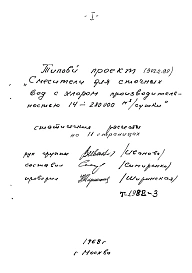 - I -
Типовой проект (902-2-)
"Смесители для сточных
вод с хлором производитель-
ностью 14 ÷ 280000 м³/сутки"
статические расчеты
на 11 страницах
рук группы (Иванова)
составил (Ситиренко)
проверил (Ширинская)
т.1982-3
1968 г
г Москва